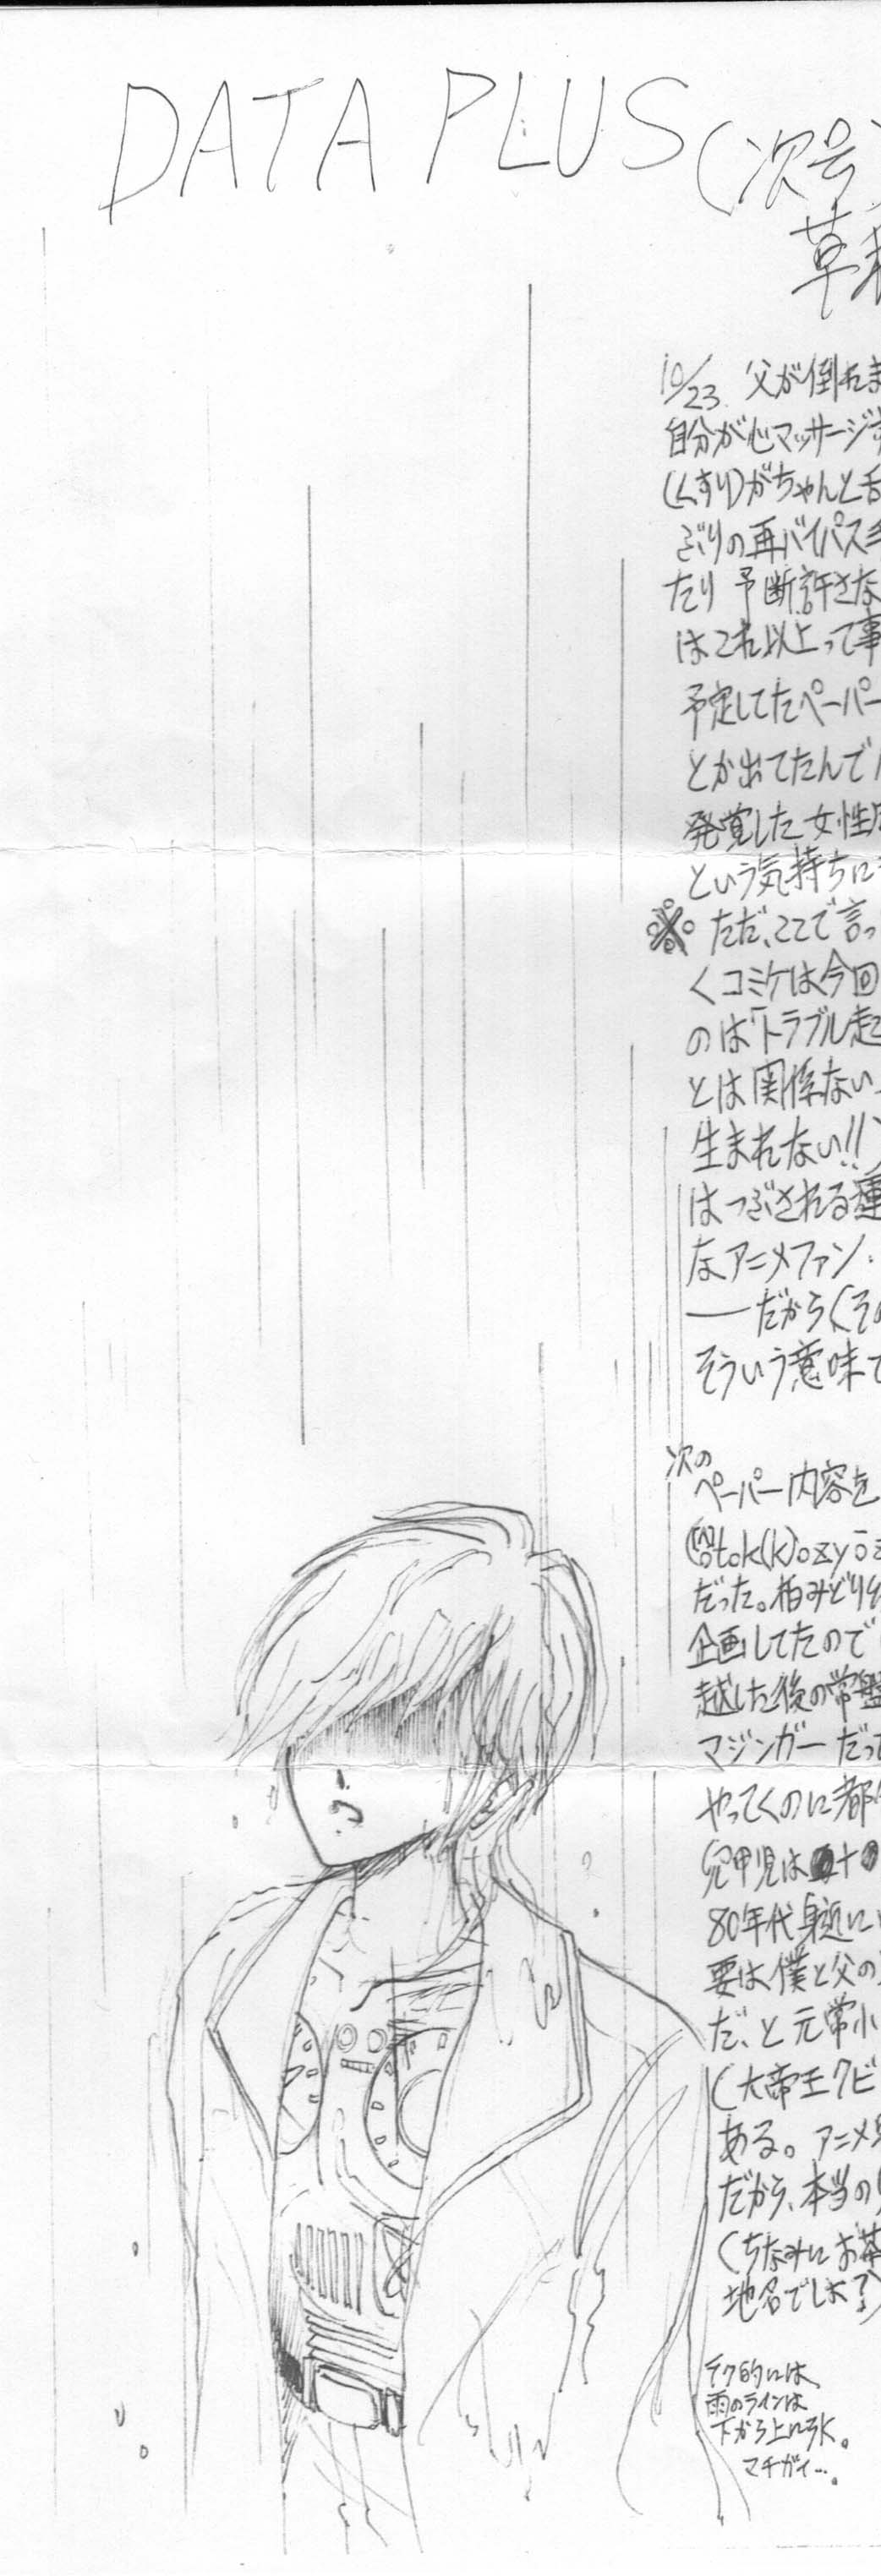 DATA PLUS (次号)
草稿
10/23 父が倒れま
自分が心マッサージ
(くすり)がちゃんと舌
ぶりの再バイパス手
たり 予断許さな
はこれ以上って事
予定してたペーパー
とか出てたんで
発覚した女性
という気持ちに
※ ただ、ここで言っ
くコミケは今回
のは「トラブル起
とは関係ない
生まれない!!
はつぶされる種
なアニメファン・
——だから(その
そういう意味で
次の
ペーパー内容を
だった。柏みどり
企画してたので
越した後の常盤
マジンガーだって
やってくのに都
兜甲児は
80年代身近に
要は僕と父の
だ、と元常小
(大帝王クビ
ある。アニメ
だから、本当の
(ちなみにお茶
地名でしょ?)
テク的には、
雨のラインは
下から上に引く。
マチガイ…。